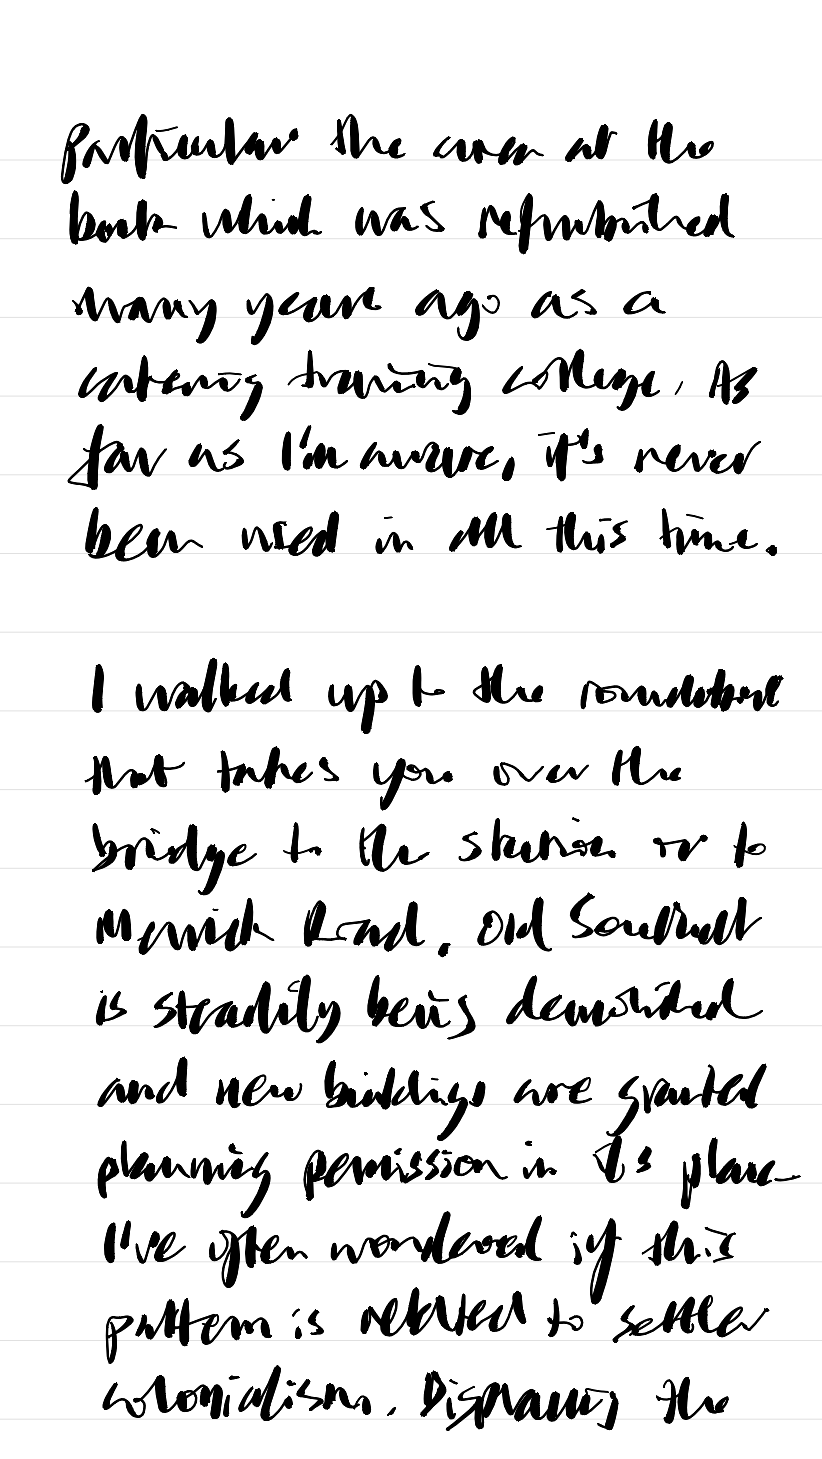 particular the area at the
back which was refurbished
many years ago as a
catering training college. As
far as I'm aware, it's never
been used in all this time.
I walked up to the roundabout
that takes you over the
bridge to the station or to
Merrick Road. Old Southall
is steadily being demolished
and new buildings are granted
planning permission in its place
I've often wondered if this
pattern is related to settler
colonialism. Displacing the